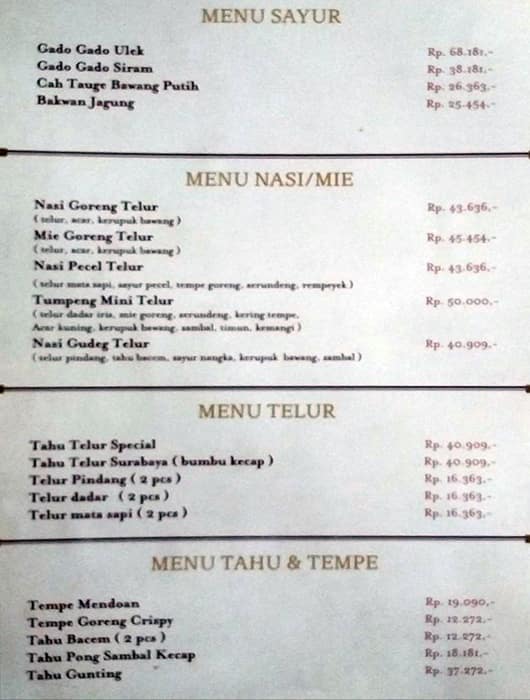 MENU SAYUR
Gado Gado Ulek Rp. 68.181,-
Gado Gado Siram Rp. 38.181,-
Cah Tauge Bawang Putih Rp. 26.363,-
Bakwan Jagung Rp. 25.454,-
MENU NASI/MIE
Nasi Goreng Telur Rp. 43.636,-
( telur, acar, kerupuk bawang )
Mie Goreng Telur Rp. 45.454,-
( telur, acar, kerupuk bawang )
Nasi Pecel Telur Rp. 43.636,-
( telur mata sapi, sayur pecel, tempe goreng, serundeng, rempeyek )
Tumpeng Mini Telur Rp. 50.000,-
( telur dadar iris, mie goreng, serundeng, kering tempe,
Acar kuning, kerupuk bawang, sambal, timun, kemangi )
Nasi Gudeg Telur Rp. 40.909,-
( telur pindang, tahu bacem, sayur nangka, kerupuk bawang, sambal )
MENU TELUR
Tahu Telur Special Rp. 40.909,-
Tahu Telur Surabaya ( bumbu kecap ) Rp. 40.909,-
Telur Pindang ( 2 pcs ) Rp. 16.363,-
Telur dadar ( 2 pcs ) Rp. 16.363,-
Telur mata sapi ( 2 pcs ) Rp. 16.363,-
MENU TAHU & TEMPE
Tempe Mendoan Rp. 19.090,-
Tempe Goreng Crispy Rp. 12.272,-
Tahu Bacem ( 2 pcs ) Rp. 12.272,-
Tahu Pong Sambal Kecap Rp. 18.181,-
Tahu Gunting Rp. 37.272,-